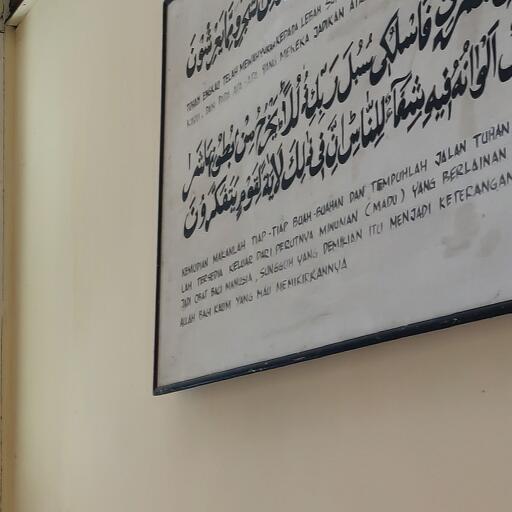 الشجر ومما يعرشون
TUHAN ENGKAU TELAH MEWAHYUKAN KEPADA LEBAH
YANG MEREKA JADIKAN
فَاسْلُكِي سُبُلَ رَبِّكِ ذُلُلًا يَخْرُجُ مِنْ بُطُونِهَا شَرَا
أَلْوَانُهُ فِيهِ شِفَاءٌ لِلنَّاسِ إِنَّ فِي ذَٰلِكَ لَآيَةً لِقَوْمٍ يَتَفَكَّرُونَ
KEMUDIAN MAKANLAH TIAP-TIAP BUAH-BUAHAN DAN TEMPUHLAH JALAN TUHAN
LAH TERSEDIA KELUAR DARI PERUTNYA MINUMAN (MADU) YANG BERLAINAN
JADI OBAT BAGI MANUSIA, SUNGGUH YANG DEMIKIAN ITU MENJADI KETERANGAN
ALLAH BAGI KAUM YANG MAU MEMIKIRKANNYA